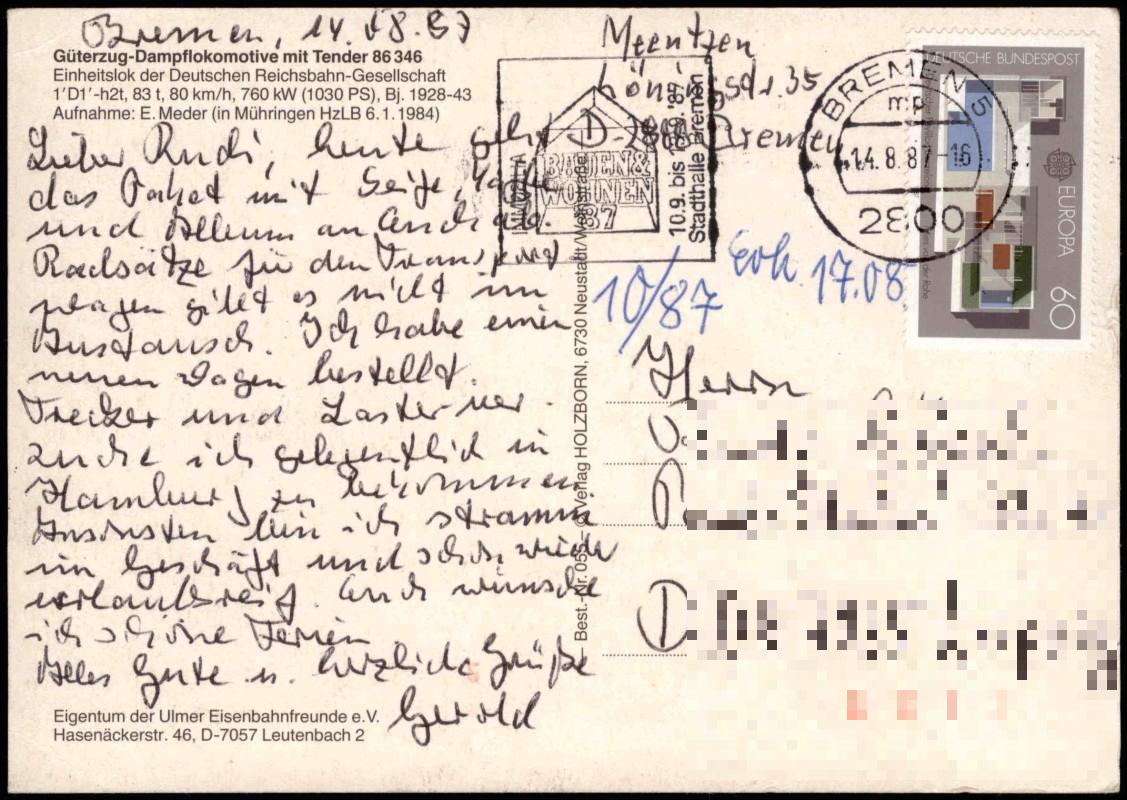 Bremen, 14.08.87
Güterzug-Dampflokomotive mit Tender 86 346
Einheitslok der Deutschen Reichsbahn-Gesellschaft
1'D1'-h2t, 83 t, 80 km/h, 760 kW (1030 PS), Bj. 1928-43
Aufnahme: E. Meder (in Mühringen HzLB 6.1.1984)
Lieber Rudi, heute geht
das Paket mit Seife,
und Allem an Euch ab.
Radsätze für den Transport
wagen gibt es nicht im
Austausch. Ich habe einen
neuen Wagen bestellt.
Trecker und Laster ver-
suche ich gelegentlich in
Hamburg zu bekommen.
Ansonsten bin ich stramm
im Geschäft und schon wieder
urlaubsreif. Euch wünsche
ich schöne Ferien
Alles Gute u. herzliche Grüße
Gerold
Eigentum der Ulmer Eisenbahnfreunde e.V.
Hasenäckerstr. 46, D-7057 Leutenbach 2
Best.-Nr. 055 © Verlag HOLZBORN, 6730 Neustadt/Weinstraße
Meentzen
35
D-28 Bremen
BAUEN&
WOHNEN
87
10.9. bis 87
Stadthalle Bremen
BREMEN 5
mp
14.8.87-16
2800
DEUTSCHE BUNDESPOST
EUROPA
60
10/87
Erh. 17.08
Herrn
D